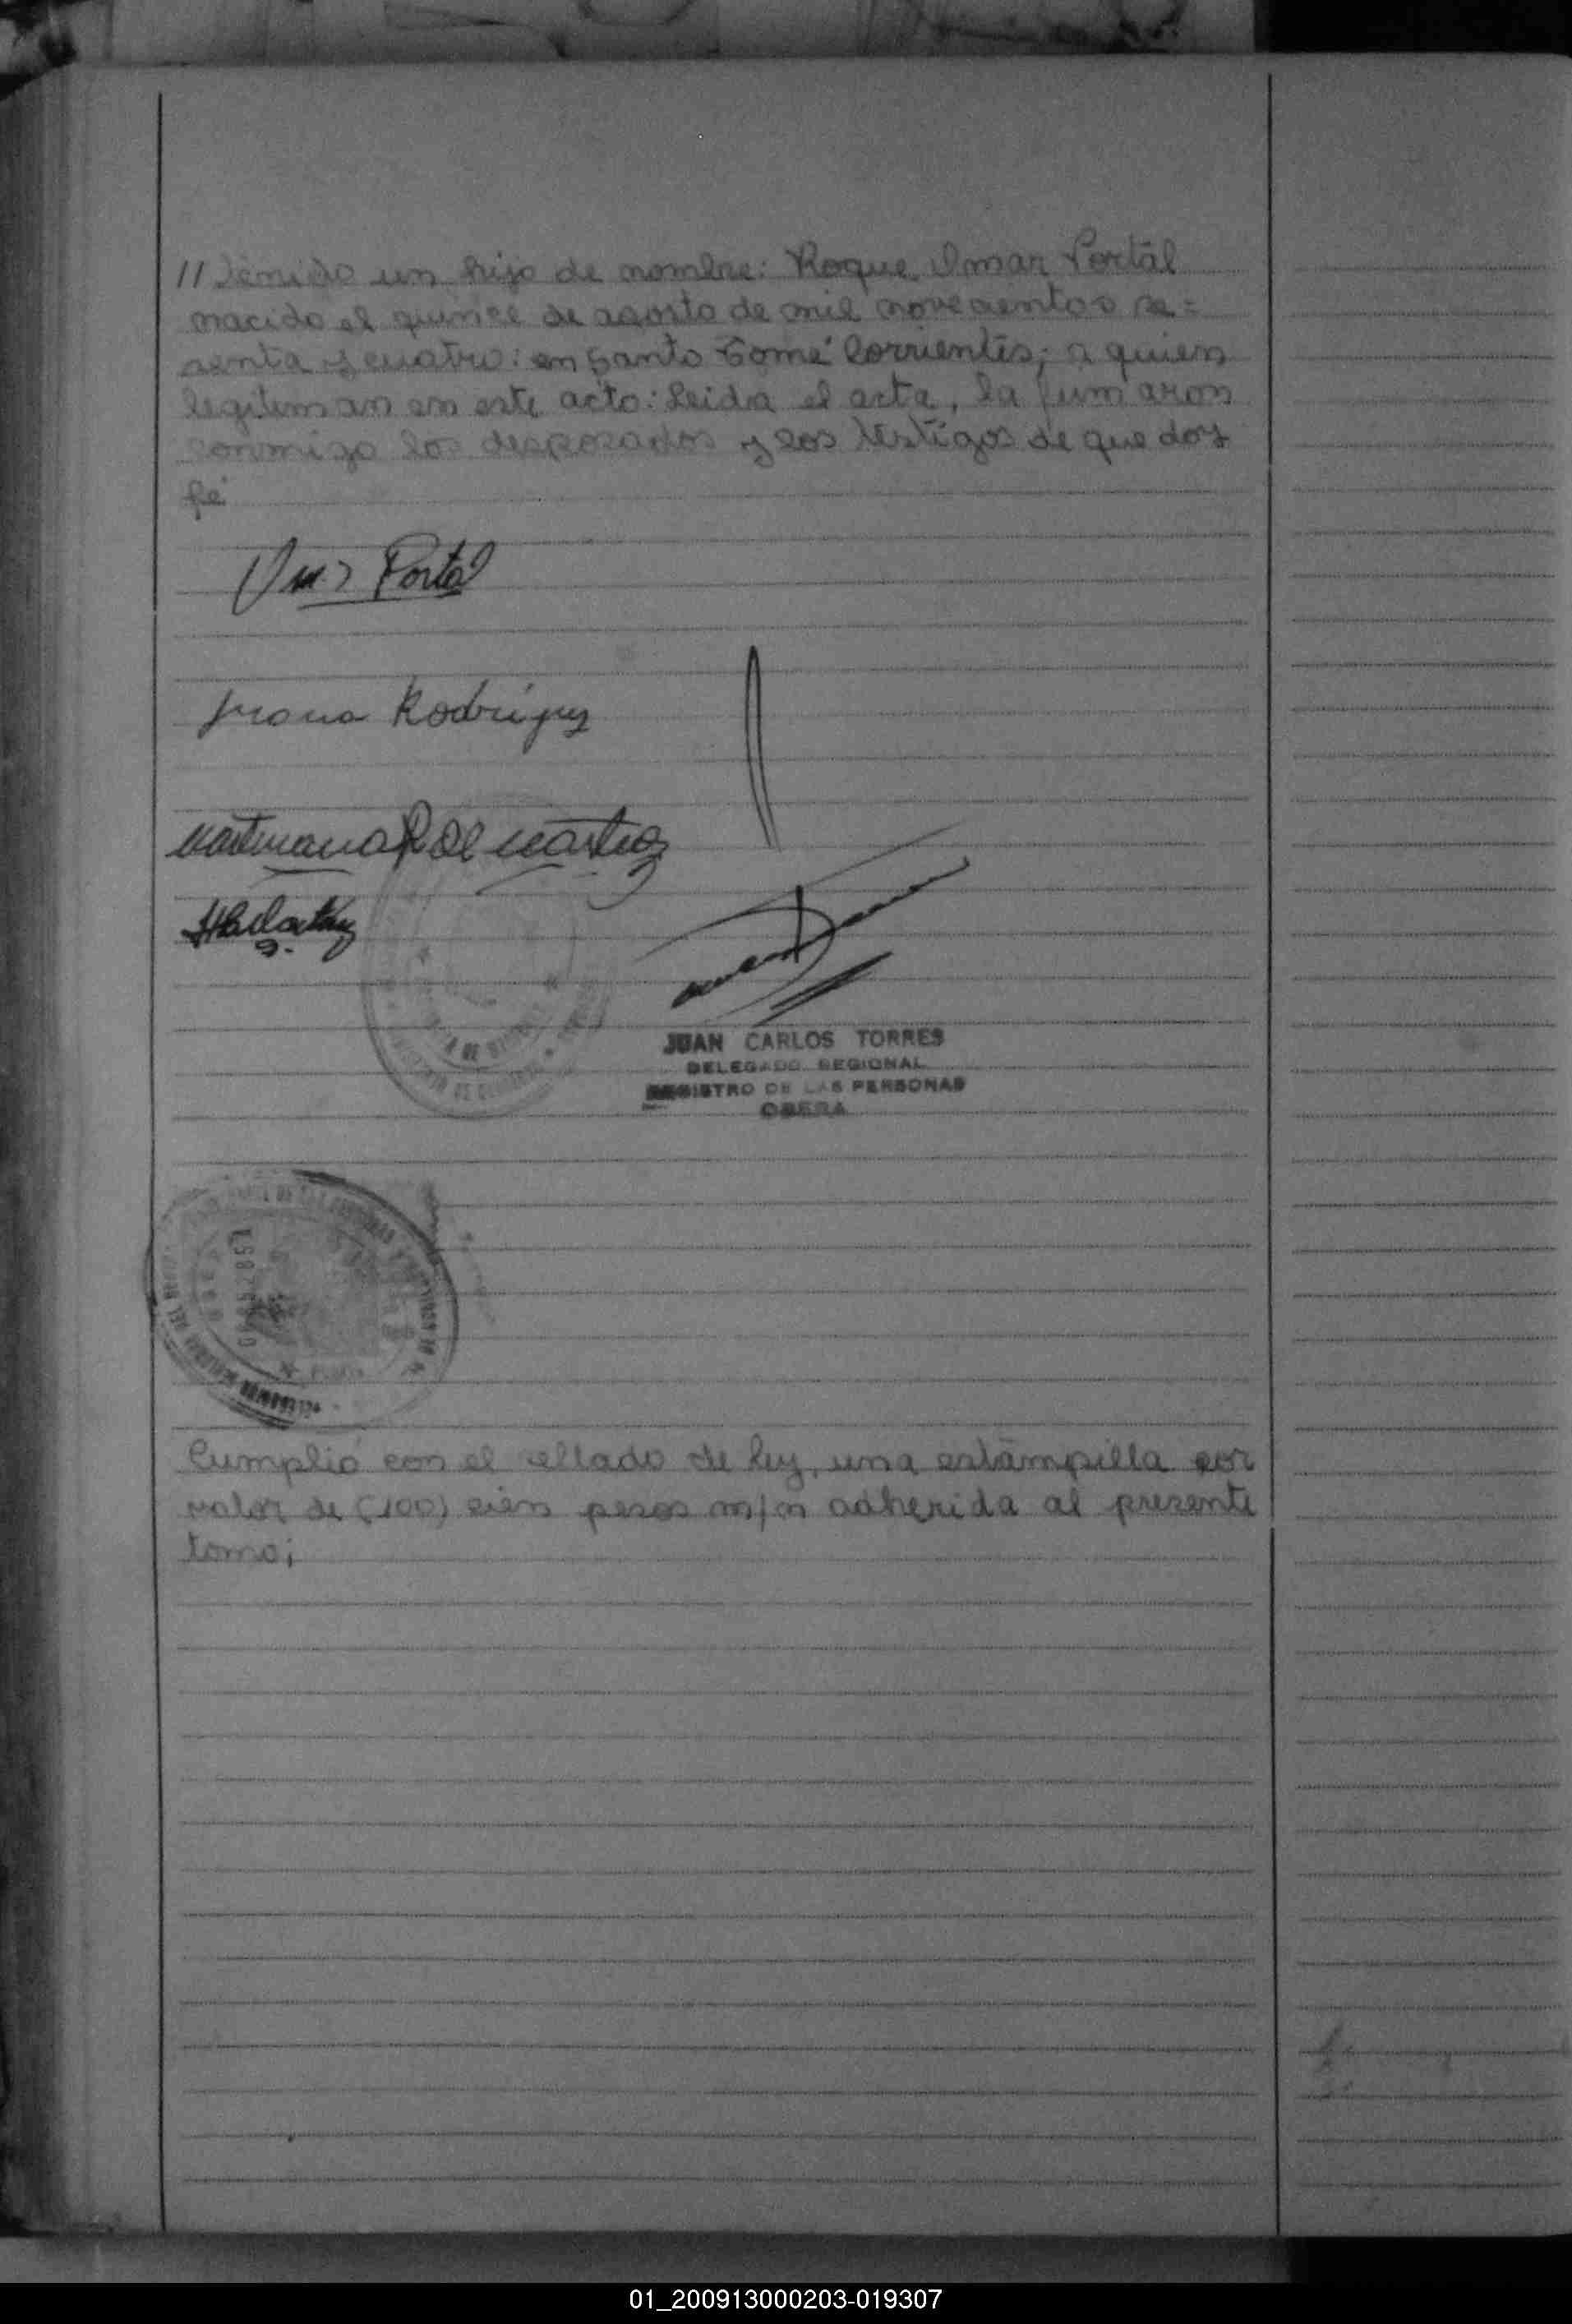 // tenido un hijo de nombre: Roque Omar Portal
nacido el quince de agosto de mil novecientos se=
senta y cuatro: en Santo Tomé Corrientes; a quien
legitiman en este acto: Leida el acta, la firmaron
conmigo los desposados y los testigos de que doy
fé
Omar Portal
Juana Rodriguez
JUAN CARLOS TORRES
DELEGADO REGIONAL
REGISTRO DE LAS PERSONAS
OBERA
Cumplió con el sellado de ley, una estampilla por
valor de (100) cien pesos m/n adherida al presente
tomo;
01_200913000203-019307